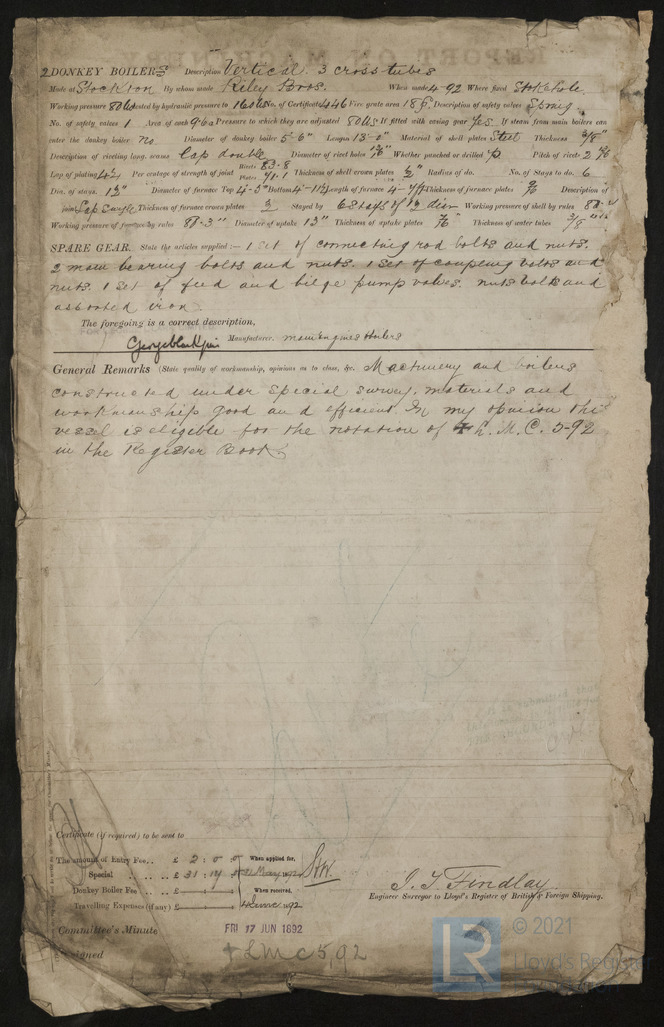 2 DONKEY BOILERS Description Vertical 3 cross tubes
Made at Stockton By whom made Riley Bros. When made 4-92 Where fixed Stokehole
Working pressure 80 lbs tested by hydraulic pressure to 160 lbs No. of Certificate 446 Fire grate area 18 ft. Description of safety valves Spring
No. of safety valves 1 Area of each 9.62 Pressure to which they are adjusted 80 lbs If fitted with easing gear Yes If steam from main boilers can
enter the donkey boiler No Diameter of donkey boiler 5-6" Length 13-0" Material of shell plates Steel Thickness 3/8"
Description of riveting long. seams Lap double Diameter of rivet holes Whether punched or drilled p. Pitch of rivets 2
Lap of plating Per centage of strength of joint Rivets 83-8 Plates 71-1 Thickness of shell crown plates 1/2" Radius of do. No. of Stays to do. 6
Dia. of stays. Diameter of furnace Top 4-5" Bottom Length of furnace Thickness of furnace plates Description of
joint Lap Single Thickness of furnace crown plates Stayed by 6 Stays of dia Working pressure of shell by rules
Working pressure of furnace by rules Diameter of uptake 13" Thickness of uptake plates 7/16" Thickness of water tubes 3/8
SPARE GEAR. State the articles supplied:— 1 set of connecting rod bolts and nuts.
2 main bearing bolts and nuts. 1 set of coupling bolts and
nuts. 1 set of feed and bilge pump valves. nuts bolts and
assorted iron.
The foregoing is a correct description,
Manufacturer. main Engines & boilers
General Remarks (State quality of workmanship, opinions as to class, &c. Machinery and boilers
constructed under Special survey, materials and
workmanship good and efficient In my opinion this
vessel is eligible for the notation of + L.M.C. 5-92
in the Register Book.
Certificate (if required) to be sent to
The amount of Entry Fee.. £ 2 : 0 : 0 When applied for,
Special .. .. .. £ 31 : 92
Donkey Boiler Fee .. .. £ When received,
Travelling Expenses (if any) £ 92
J. T. Findlay
Engineer Surveyor to Lloyd's Register of British & Foreign Shipping.
Committee's Minute FRI 17 JUN 1892
+ LMC 5,92
LR © 2021
Lloyd's Register